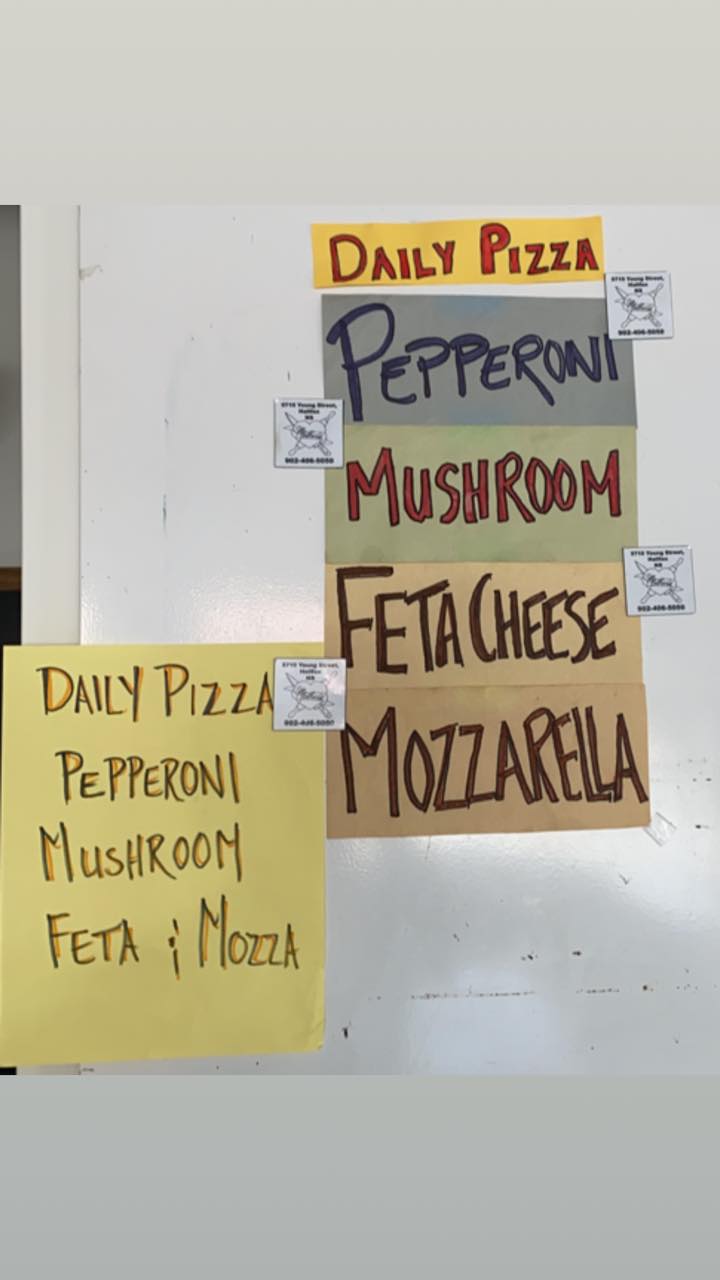 DAILY PIZZA
PEPPERONI
MUSHROOM
FETA CHEESE
MOZZARELLA
DAILY PIZZA
PEPPERONI
MUSHROOM
FETA & MOZZA
5710 Young Street,
Halifax
NS
902-406-5050
5710 Young Street,
Halifax
NS
902-406-5050
5710 Young Street,
Halifax
NS
902-406-5050
5710 Young Street,
Halifax
NS
902-406-5050